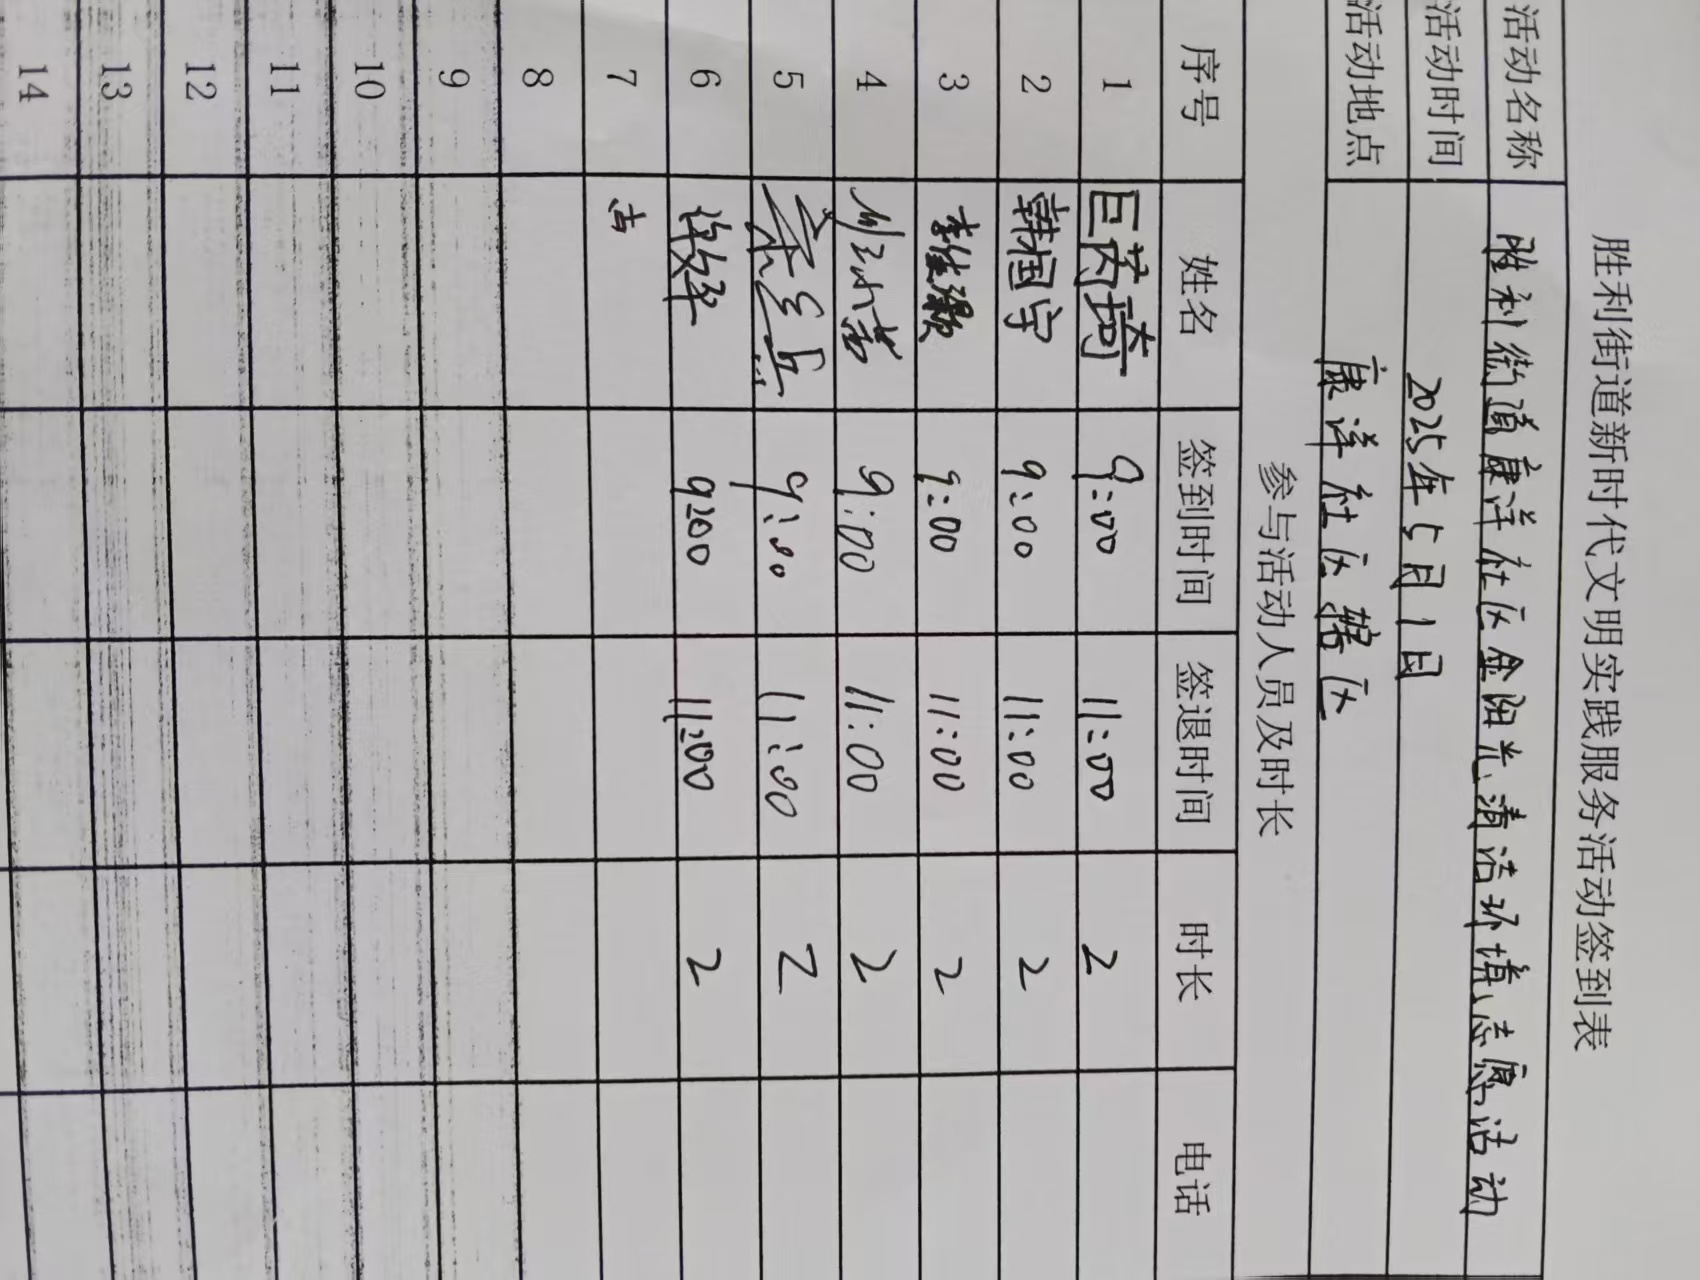 胜利街道新时代文明实践服务活动签到表
活动名称 胜利街道康洋社区金阳光清洁环境志愿活动
活动时间 2025年5月1日
活动地点 康洋社区辖区
参与活动人员及时长
序号 姓名 签到时间 签退时间 时长 电话
1 巨芮琦 9:00 11:00 2
2 韩国宇 9:00 11:00 2
3 9:00 11:00 2
4 9:00 11:00 2
5 9:00 11:00 2
6 9:00 11:00 2
7
8
9
10
11
12
13
14